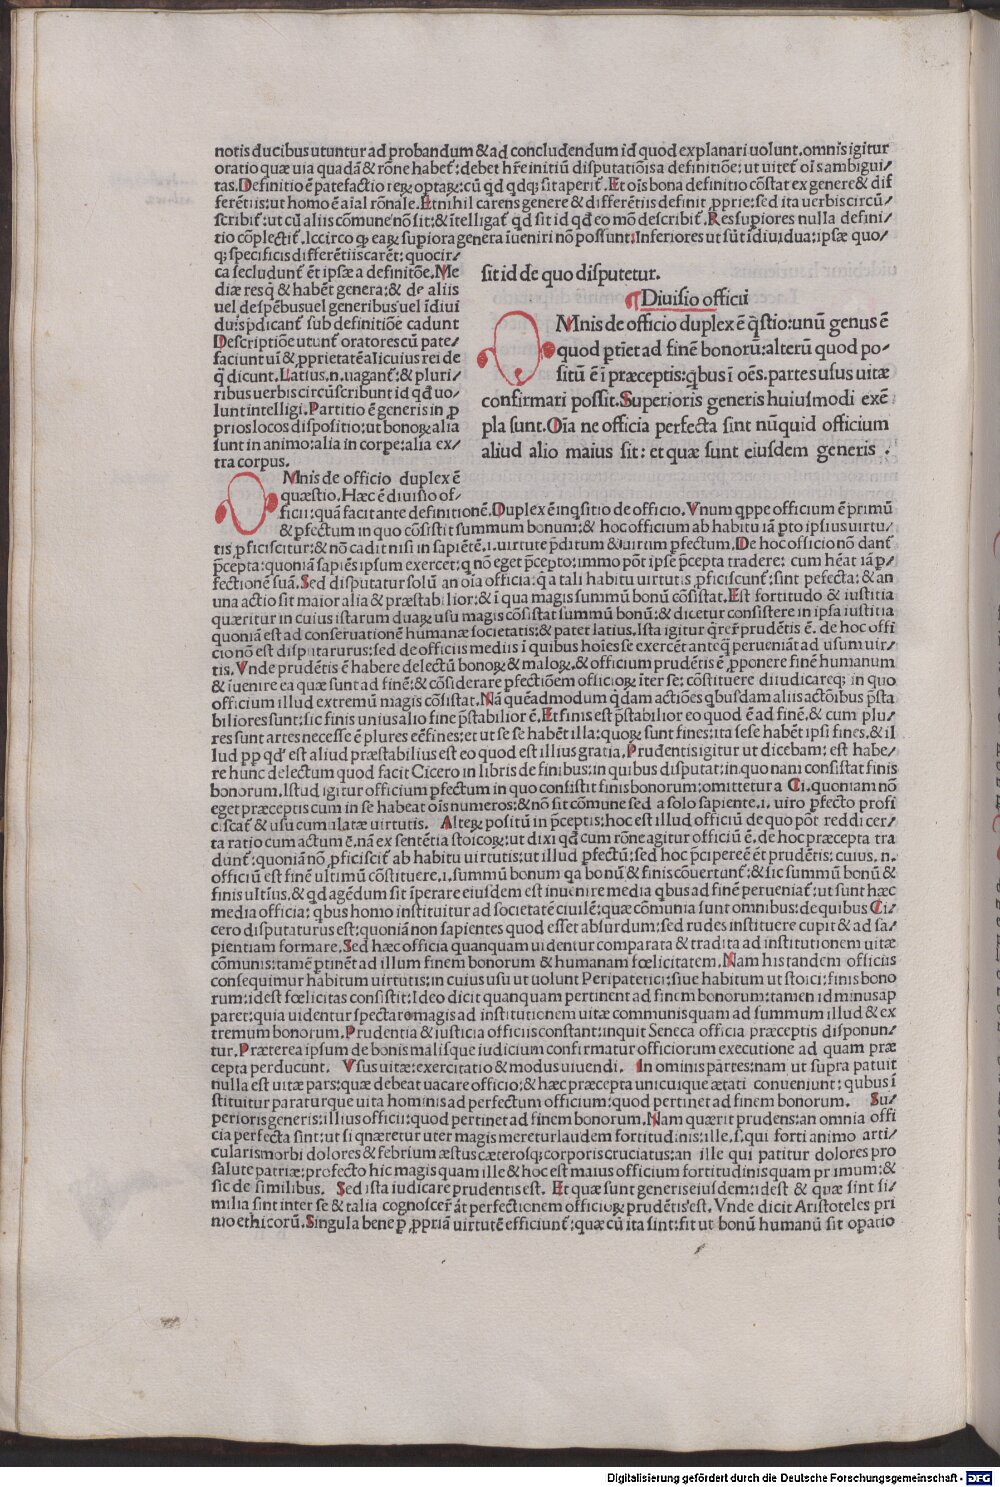 notis ducibus utuntur ad probandum & ad concludendum id quod explanari uolunt. omnis igitur
oratio quæ uia quadā & rōne habet̄: debet hr̄e initiū disputatiōis a definitiōe: ut uitet̄ oīs ambigui/
tas. Definitio ē patefactio reꝝ optaꝝ: cū qd̄ qdq; sit aperit̄. Et oīs bona definitio cōstat ex genere & dif
ferētiis: ut homo ē aīal rōnale. Et nihil carens genere & differētiis definit̄ pprie: sed ita uerbis circū/
scribit̄: ut cū aliis cōmune nō sit: & ītelligat̄ qd̄ sit id qd̄ eo mō describit̄. Res supiores nulla defini/
tio cōplectit̄. Iccirco qꝫ eaꝝ supiora genera īueniri nō possunt: Inferiores ut sūt īdiuidua: ipsæ quo/
q; specificis differētiis carēt: quocir/
ca secludunt̄ ēt ipsæ a definitiōe. Me
diæ resq̄ & habēt genera: & de aliis
uel despēbus uel generibus uel īdiui
duis p̄dicant̄ sub definitiōe cadunt
Descriptiōe utunt̄ oratores cū pate/
faciunt uī & pprietatē alicuius rei de
q̄ dicunt. Latius. n. uagant̄: & pluri/
ribus uerbis circūscribunt id qd̄ uo/
lunt intelligi. Partitio ē generis in p
prios locos dispositio: ut bonoꝝ alia
sunt in animo: alia in corpe: alia ex/
tra corpus.
sit id de quo disputetur.
¶ Diuisio officii
OMnis de officio duplex ē q̄stio: unū genus ē
quod ptīet ad finē bonorū: alterū quod po-
sitū ē ī præceptis: qbus ī oēs. partes usus uitæ
confirmari possit. Superioris generis huiusmodi exē
pla sunt. Oīa ne officia perfecta sint nūquid officium
aliud alio maius sit: et quæ sunt eiusdem generis .
OMnis de officio duplex ē
quæstio. Hæc ē diuisio of-
ficii: quā facit ante definitionē. Duplex ē inq̄sitio de officio. Vnum qppe officium ē primū
& pfectum in quo cōsistit summum bonum: & hoc officium ab habitu iā pto ipsius uirtu/
tis pficiscitur: & nō cadit nisi in sapiētē. i. uirtute p̄ditum & uirum pfectum. De hoc officio nō dant̄
p̄cepta: quoniā sapiēs ipsum exercet: q nō eget p̄cepto: immo pōt ipse p̄cepta tradere: cum hēat iā p/
fectionē suā. Sed disputatur solū an oīa officia: q̄ a tali habitu uirtutis pficiscunt̄: sint pefecta: & an
una actio sit maior alia & præstabilior: & ī qua magis summū bonū cōsistat. Est fortitudo & iustitia
quæritur in cuius istarum duaꝝ usu magis cōsistat summū bonū: & dicetur consistere in ipsa iustitia
quoniā est ad conseruationē humanæ societatis: & patet latius. Ista igitur q̄rer̄ prudētis ē. de hoc offi
cio nō est disputaturus: sed de officiis mediis ī quibus hoīes se exercēt anteq̄ perueniāt ad usum uir/
tis. Vnde prudētis ē habere delectū bonoꝝ & maloꝝ. & officium prudētis ē pponere finē humanum
& īuenire ea quæ sunt ad finē: & cōsiderare pfectiōem officioꝝ īter se: cōstituere diiudicareq; in quo
officium illud extremū magis cōsistat. Nā quēadmodum q̄dam actiōes qbusdam aliis actōibus p̄sta
biliores sunt: sic finis unius alio fine p̄stabilior ē. Et finis est p̄stabilior eo quod ē ad finē. & cum plu/
res sunt artes necesse ē plures eē fines: et ut se se habēt illa: quoꝝ sunt fines: ita sese habēt ipsi fines. & il
lud pp qd' est aliud præstabilius est eo quod est illius gratia. Prudentis igitur ut dicebam: est habe/
re hunc delectum quod facit Cicero in libris de finibus: in quibus disputat: in quo nam consistat finis
bonorum. Istud igitur officium pfectum in quo consistit finis bonorum: omittetur a Ci. quoniam nō
eget præceptis cum in se habeat oīs numeros: & nō sit cōmune sed a solo sapiente. i. uiro pfecto profi
ciscat̄ & usu cumulatæ uirtutis. Alteꝝ positū in p̄ceptis: hoc est illud officiū de quo pōt reddi cer/
ta ratio cum actum ē. nā ex sentētia stoicoꝝ: ut dixi qd̄ cum rōne agitur officiū ē. de hoc præcepta tra
dunt̄: quoniā nō pficiscit̄ ab habitu uirtutis: ut illud pfectū: sed hoc p̄cipere ē ēt prudētis: cuius. n.
officiū est finē ultimū cōstituere. i. summū bonum qa bonū & finis cōuertunt̄: & sic summū bonū &
finis ultīus. & qd agēdum sit īperare eiusdem est inuenire media qbus ad finē perueniat̄: ut sunt hæc
media officia: qbus homo instituitur ad societatē ciuilē: quæ cōmunia sunt omnibus: de quibus Ci/
cero disputaturus est: quoniā non sapientes quod esset absurdum: sed rudes instituere cupit & ad sa/
pientiam formare. Sed hæc officia quanquam uidentur comparata & tradita ad institutionem uitæ
cōmunis: tamē ptinēt ad illum finem bonorum & humanam fœlicitatem. Nam his tandem officiis
consequimur habitum uirtutis: in cuius usu ut uolunt Peripatetici: siue habitum ut stoici: finis bono
rum: id est fœlicitas consistit: Ideo dicit quanquam pertinent ad finem bonorum: tamen id minus ap
paret: quia uidentur spectare magis ad institutionem uitæ communis quam ad summum illud & ex
tremum bonorum. Prudentia & iusticia officiis constant: inquit Seneca officia præceptis disponun/
tur. Præterea ipsum de bonis malisque iudicium confirmatur officiorum executione ad quam præ
cepta perducunt. Vsus uitæ: exercitatio & modus uiuendi. In ominis partes: nam ut supra patuit
nulla est uitæ pars: quæ debeat uacare officio: & hæc præcepta unicuique ætati conueniunt: qubus ī
stituitur paraturque uita hominis ad perfectum officium: quod pertinet ad finem bonorum. Su/
perioris generis: illius officii: quod pertinet ad finem bonorum. Nam quærit prudens: an omnia offi
cia perfecta sint: ut si qnæretur uter magis meretur laudem fortitudinis: ille. s. qui forti animo arti/
cularis morbi dolores & febrium æstus cæterosq; corporis cruciatus: an ille qui patitur dolores pro
salute patriæ: profecto hic magis quam ille & hoc est maius officium fortitudinis quam primum: &
sic de similibus. Sed ista iudicare prudentis est. Et quæ sunt generis eiusdem: id est & quæ sint si/
milia sint inter se & talia cognoscer̄ āt perfectionem officioꝝ prudētis est. Vnde dicit Aristoteles pri
mo ethicorū. Singula bene p ppriā uirtutē efficiunt̄: quæ cū ita sint: fit ut bonū humanū sit opatio
Digitalisierung gefördert durch die Deutsche Forschungsgemeinschaft - DFG